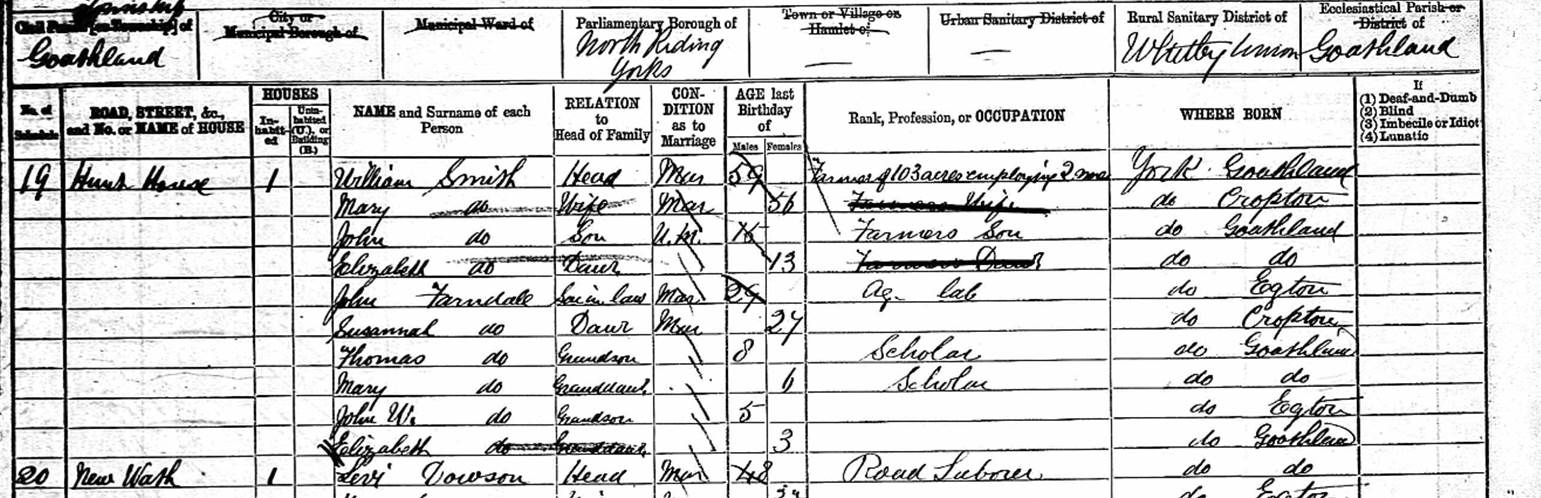 Township
Civil Parish [or Township] of
Goathland
City or
Municipal Borough of
Municipal Ward of
Parliamentary Borough of
North Riding
Yorks
Town or Village or
Hamlet of
—
Urban Sanitary District of
—
Rural Sanitary District of
Whitby Union
Ecclesiastical Parish or
District of
Goathland
No. of
Schedule
ROAD, STREET, &c.,
and No. or NAME of HOUSE
HOUSES
In-
habit-
ed
Unin-
habited
(U.), or
Building
(B.)
NAME and Surname of each
Person
RELATION
to
Head of Family
CON-
DITION
as to
Marriage
AGE last
Birthday
of
Males Females
Rank, Profession, or OCCUPATION
WHERE BORN
If
(1) Deaf-and-Dumb
(2) Blind
(3) Imbecile or Idiot
(4) Lunatic
19 Hunt House 1 William Smith Head Mar 59 Farmer of 103 acres employing 2 men York Goathland
Mary do Wife Mar 56 Farmers Wife do Cropton
John do Son U.M. Farmers Son do Goathland
Elizabeth do Daur 13 Farmers Daur do do
John Farndale Son in law Mar 29 Ag. lab do Egton
Susannah do Daur Mar 27 do Cropton
Thomas do Grandson 8 Scholar do Goathland
Mary do Granddaur. 6 Scholar do do
John W. do Grandson 5 do Egton
Elizabeth do Granddaur. 3 do Goathland
20 New Wath 1 Levi Dowson Head Mar 48 Road Laborer do do
do Egton